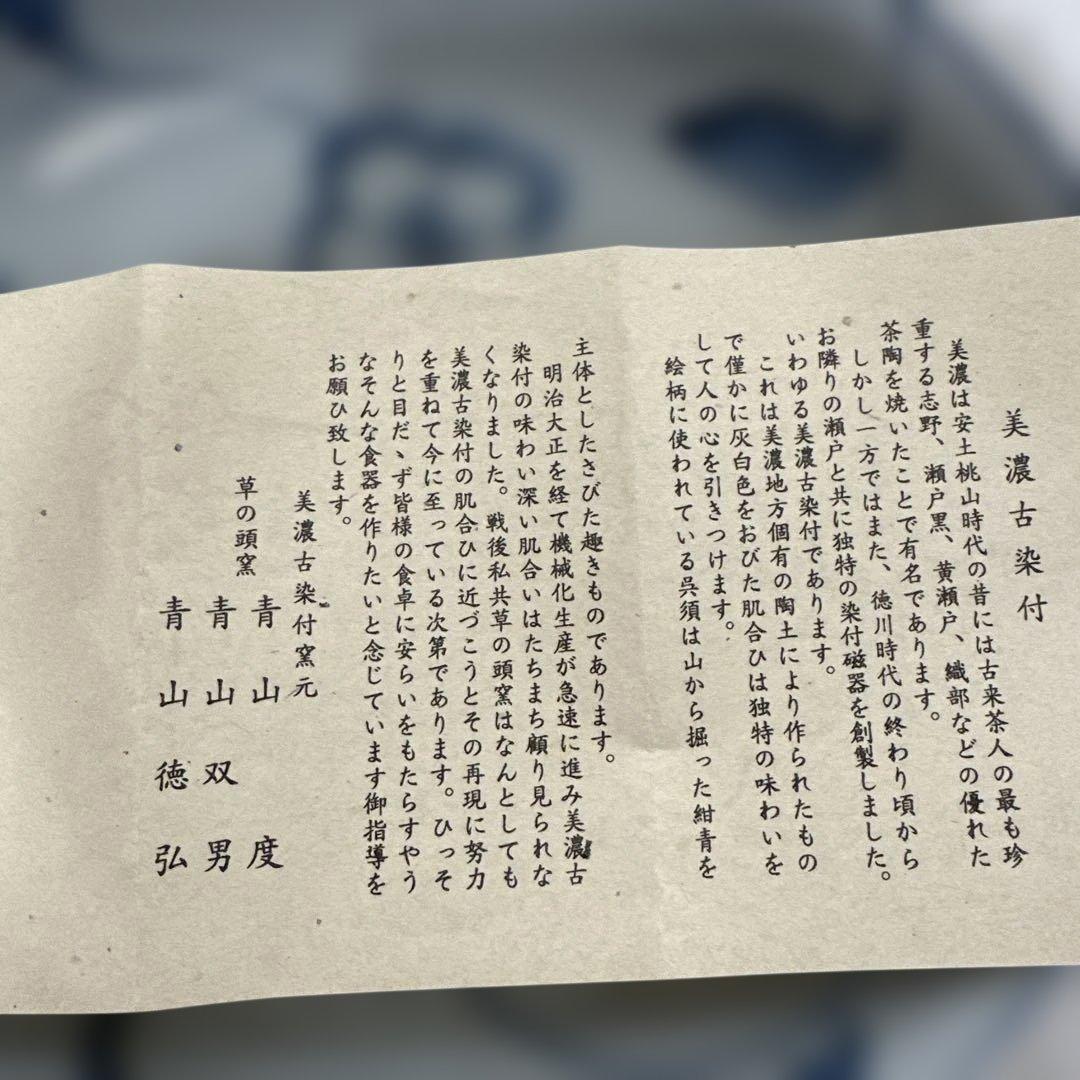 美濃古染付
美濃は安土桃山時代の昔には古来茶人の最も珍
重する志野、瀬戸黒、黄瀬戸、織部などの優れた
茶陶を焼いたことで有名であります。
しかし一方ではまた、徳川時代の終わり頃から
お隣りの瀬戸と共に独特の染付磁器を創製しました。
いわゆる美濃古染付であります。
これは美濃地方個有の陶土により作られたもの
で僅かに灰白色をおびた肌合ひは独特の味わいを
して人の心を引きつけます。
絵柄に使われている呉須は山から掘った紺青を
主体としたさびた趣きものであります。
明治大正を経て機械化生産が急速に進み美濃古
染付の味わい深い肌合いはたちまち顧り見られな
くなりました。戦後私共草の頭窯はなんとしても
美濃古染付の肌合ひに近づこうとその再現に努力
を重ねて今に至っている次第であります。ひっそ
りと目だゝず皆様の食卓に安らいをもたらすやう
なそんな食器を作りたいと念じています御指導を
お願ひ致します。
美濃古染付窯元
草の頭窯
青山度
青山双男
青山徳弘